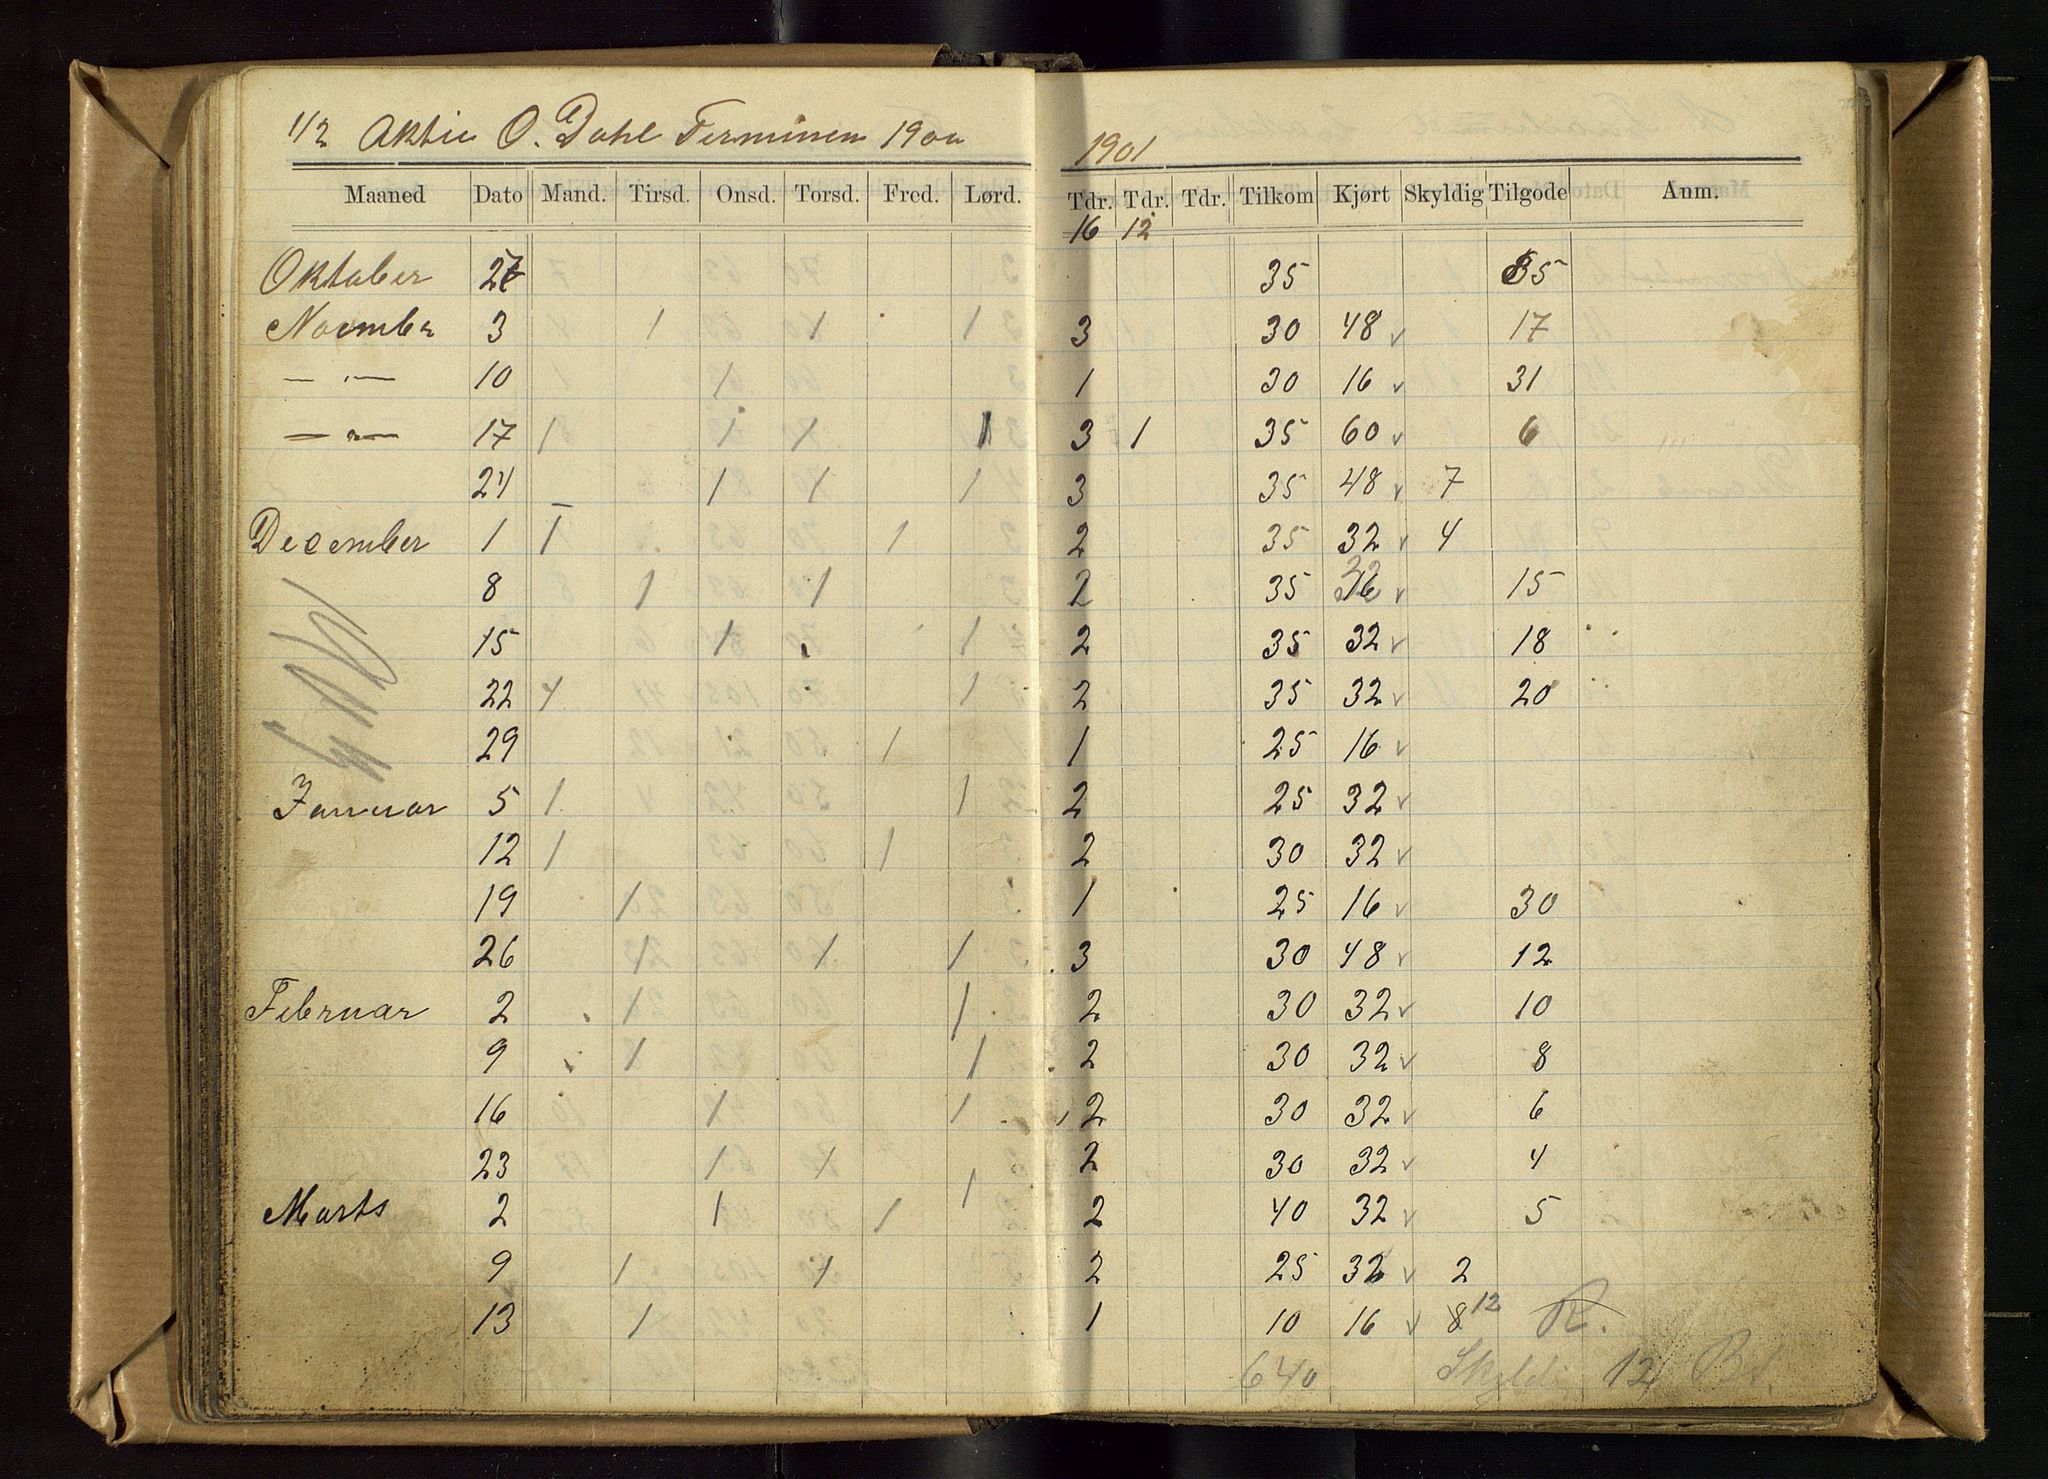 1/2 Aktie O. Dahl Terminen 1900 1901
Maaned Dato Mand. Tirsd. Onsd. Torsd. Fred. Lørd. Tdr. Tdr. Tdr. Tilkom Kjørt Skyldig Tilgode Anm.
16 12
Oktober 27 35 35
November 3 1 1 1 3 30 48 v 17
— " — 10 1 1 30 16 v 31
— " — 17 1 1 1 1 3 1 35 60 v 6
24 1 1 1 3 35 48 v 7
December 1 1 1 2 35 32 v 4
8 1 1 2 35 32 v 15
15 1 1 2 35 32 v 18
22 1 1 2 35 32 v 20
29 1 1 25 16 v
Januar 5 1 1 2 25 32 v
12 1 1 2 30 32 v
19 1 1 25 16 v 30
26 1 1 1 3 30 48 v 12
Februar 2 1 1 2 30 32 v 10
9 1 1 2 30 32 v 8
16 1 1 2 30 32 v 6
23 1 1 2 30 32 v 4
Marts 2 1 1 1 2 40 32 v 5
9 1 1 2 25 32 v 2
13 1 1 10 16 v 8 12 R.
640 Skyldi 12 Bt.